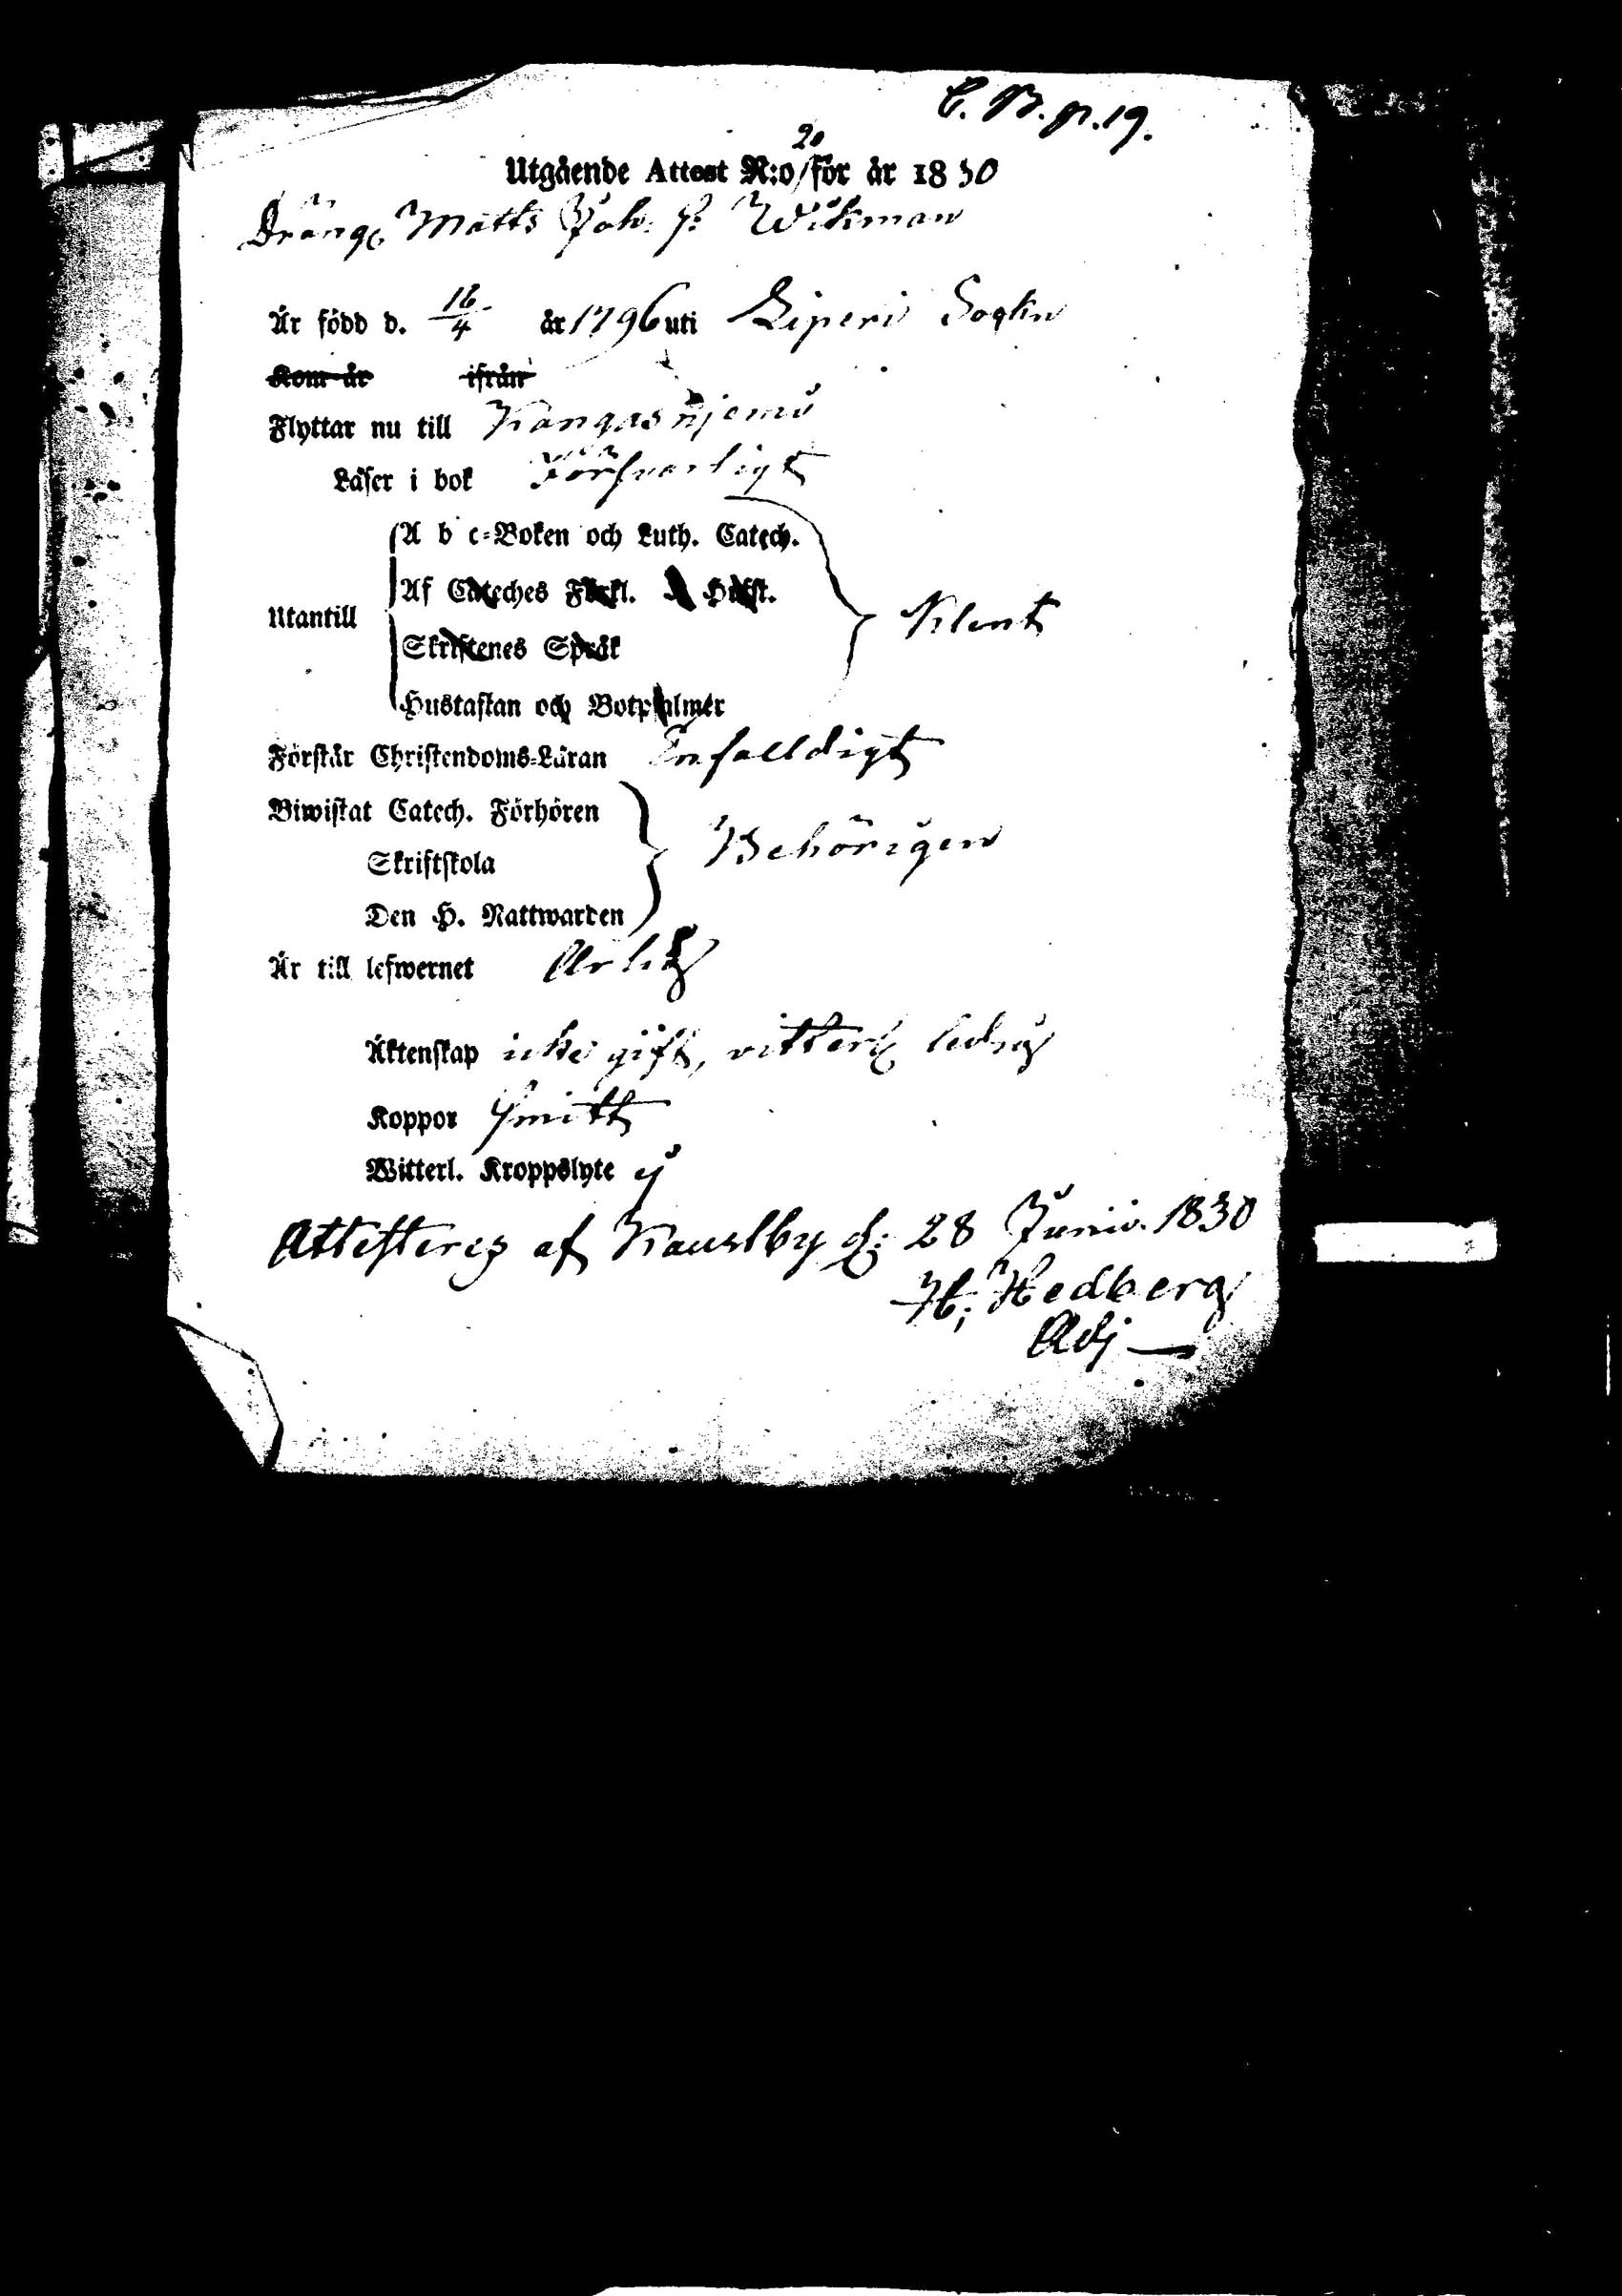 C. B. p. 19.
20
Utgående Attest N:o / för år 1830
Dräng. Matts Joh: s: Wikman
Är född d. 16/4 år 1796 uti Liperi Sokn
Kom år ifrån
Flyttar nu till Kangasnjemi
Läser i bok Försvarligt
A b c=Boken och Luth. Catech.
Af Cateches Förkl. Hufst.
Utantill Klent
Skriftenes Språk
Hustaflan och Botpsalmer
Förstår Christendoms=Läran Enfalldigt
Biwistat Catech. Förhören
Behörigen
Skriftskola
Den H. Nattwarden
Är till lefwernet Ärlig
Äktenskap icke gift, vitterl. ledig
Koppor Smitt
Witterl. Kroppslyte ej
Attesteres af d: 28 Junii 1830
H; Hedberg
Adj